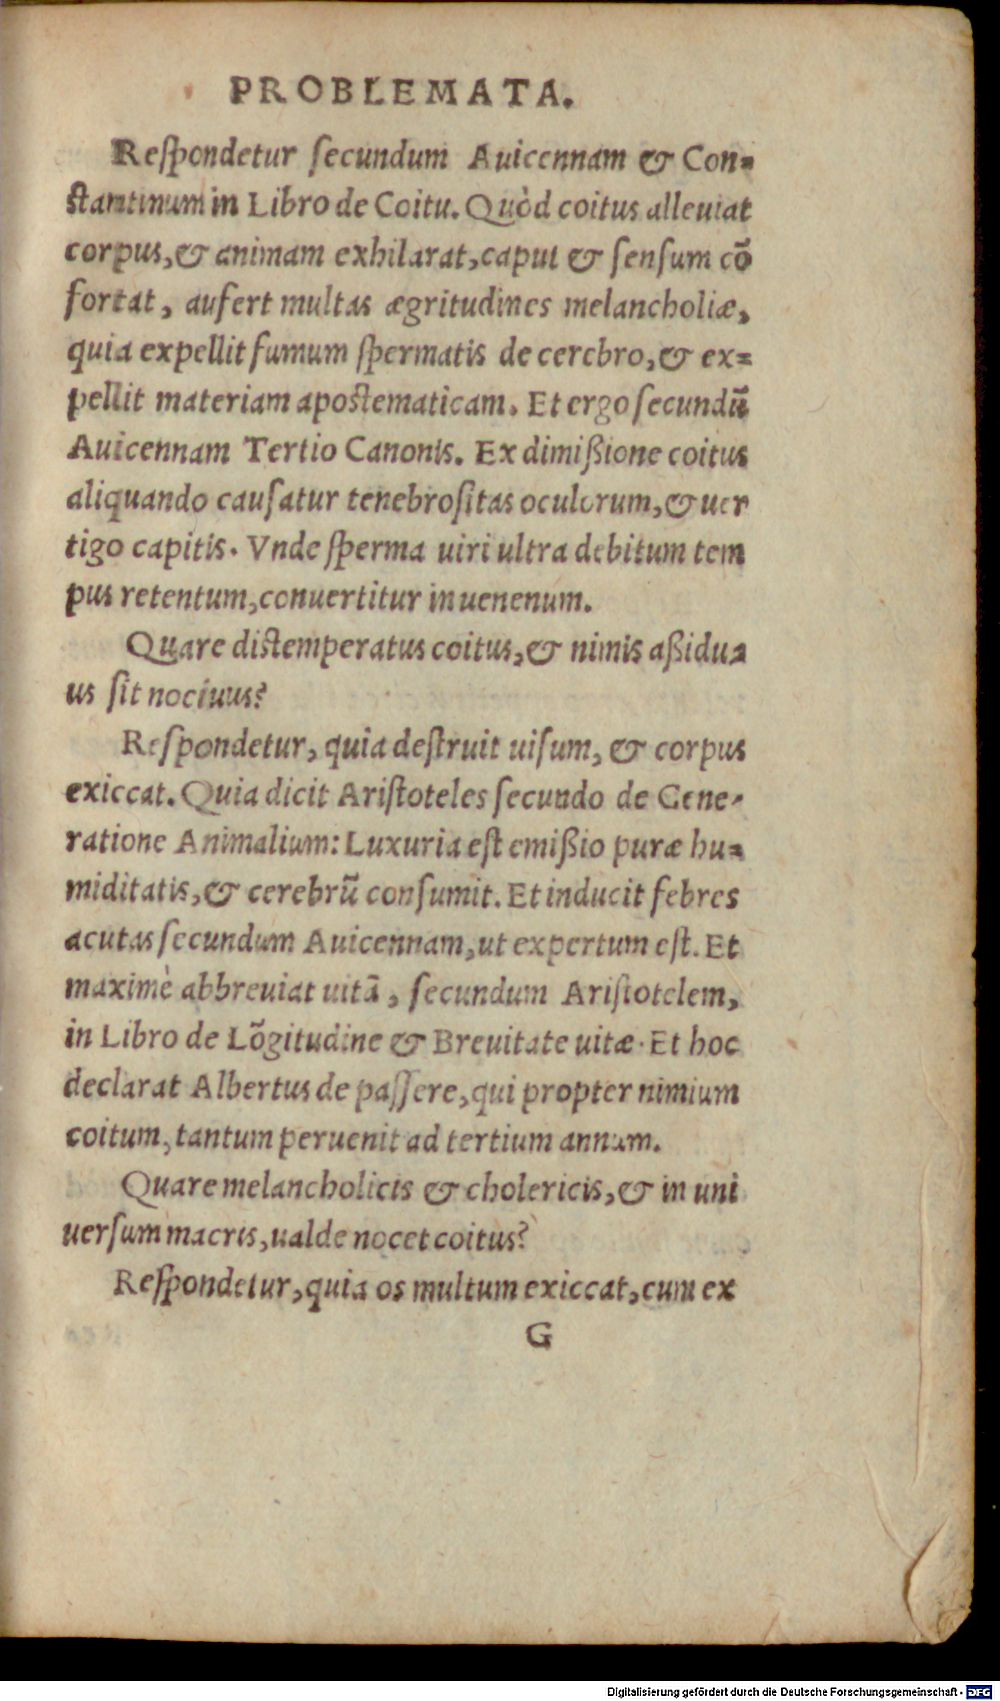 PROBLEMATA.
Reſpondetur ſecundum Auicennam & Con-
ſtantinum in Libro de Coitu. Quòd coitus alleuiat
corpus, & animam exhilarat, caput & ſenſum cō
fortat, aufert multas ægritudines melancholiæ,
quia expellit fumum ſpermatis de cerebro, & ex-
pellit materiam apoſtematicam. Et ergo ſecundū
Auicennam Tertio Canonis. Ex dimißione coitus
aliquando cauſatur tenebroſitas oculorum, & uer
tigo capitis. Vnde ſperma uiri ultra debitum tem
pus retentum, conuertitur in uenenum.
Quare diſtemperatus coitus, & nimis aßidu-
us ſit nociuus?
Reſpondetur, quia deſtruit uiſum, & corpus
exiccat. Quia dicit Ariſtoteles ſecundo de Gene-
ratione Animalium: Luxuria eſt emißio puræ hu-
miditatis, & cerebrū conſumit. Et inducit febres
acutas ſecundum Auicennam, ut expertum eſt. Et
maximè abbreuiat uitā, ſecundum Ariſtotelem,
in Libro de Lōgitudine & Breuitate uitæ. Et hoc
declarat Albertus de paſſere, qui propter nimium
coitum, tantum peruenit ad tertium annum.
Quare melancholicis & cholericis, & in uni
uerſum macris, ualde nocet coitus?
Reſpondetur, quia os multum exiccat, cum ex
G
Digitalisierung gefördert durch die Deutsche Forschungsgemeinschaft - DFG